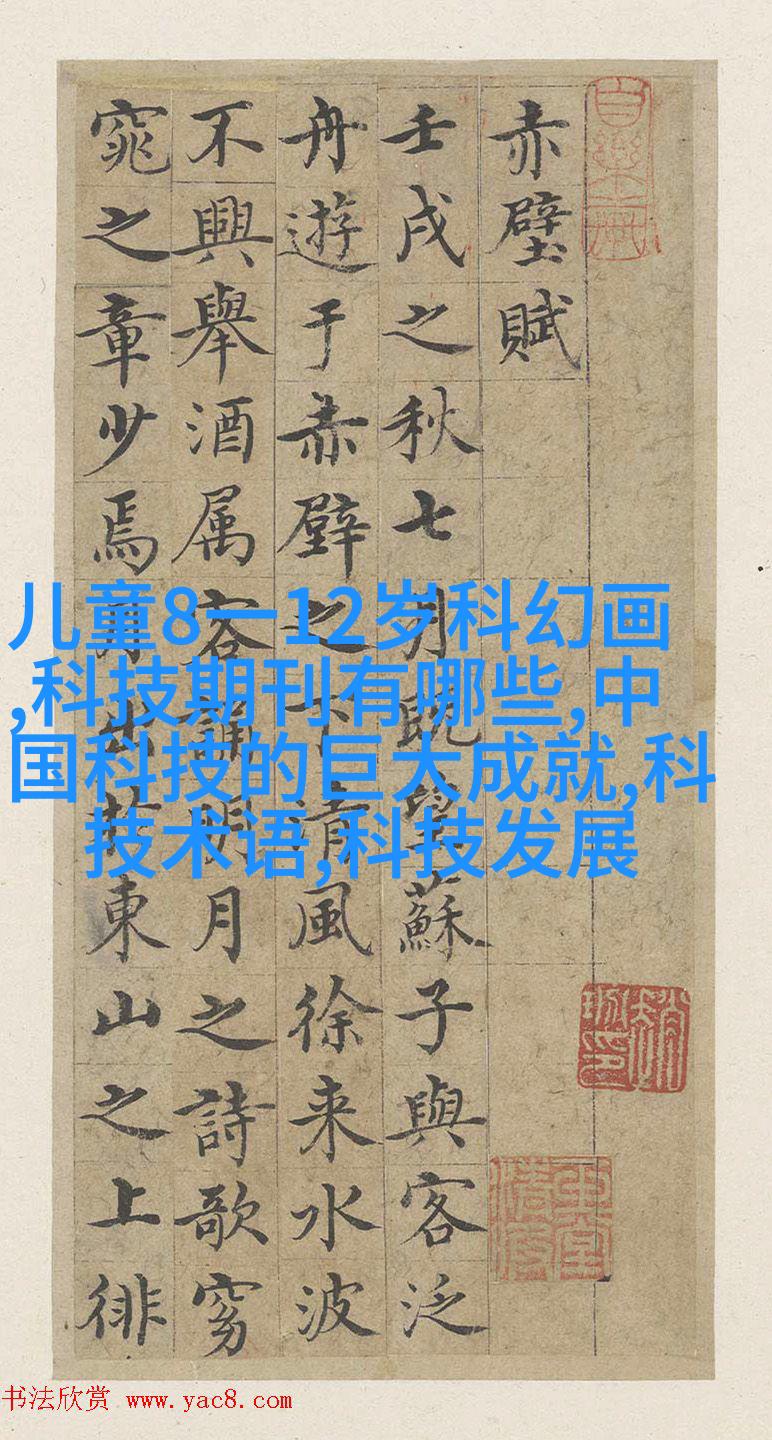 赤壁賦
壬戌之秋七月既望蘇子與客泛
舟遊于赤壁之下清風徐来水波
不興舉酒属客誦明月之詩歌窈
窕之章少焉月出於東山之上徘
儿童8一12岁科幻画
,科技期刊有哪些,中
国科技的巨大成就,科
技术语,科技发展
书法欣赏 www.yac8.com